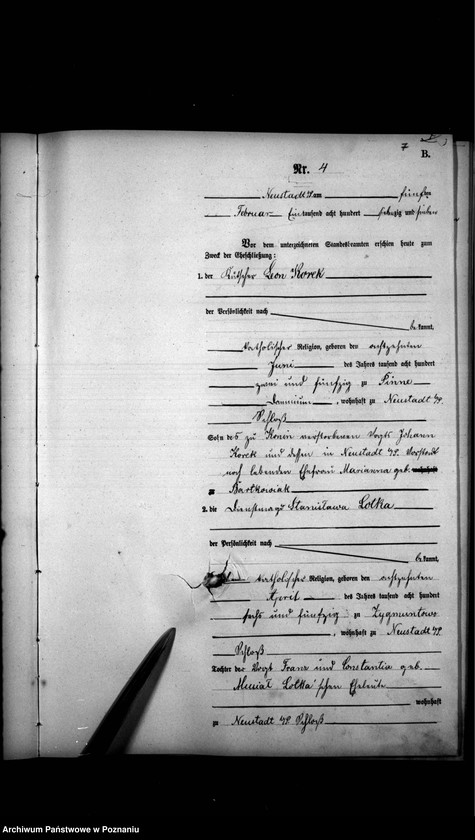 7
B.
Nr. 4
Neustadt b/P. am fünften
Februar Eintausend acht hundert siebzig und sieben
Vor dem unterzeichneten Standesbeamten erschien heute zum
Zweck der Eheschließung:
1. der Kutscher Leon Korek
der Persönlichkeit nach
be kannt,
katholischer Religion, geboren den achtzehnten
Juni des Jahres tausend acht hundert
zwei und fünfzig zu Pinne
Dominium, wohnhaft zu Neustadt b/P.
Schloß
Sohn des zu Konin verstorbenen Vogts Johann
Korek und dessen in Neustadt b/P. Vorstadt
noch lebenden Ehefrau Marianna geb. wohnhaft
zu Bartkowiak
2. die Dienstmagd Stanislawa Lotka
der Persönlichkeit nach
be kannt,
katholischer Religion, geboren den achtzehnten
April des Jahres tausend acht hundert
sechs und fünfzig zu Zygmuntowo
, wohnhaft zu Neustadt b/P.
Schloß
Tochter der Vogt Franz und Constantia geb.
Lotka'schen Eheleute
wohnhaft
zu Neustadt b/P. Schloß
Archiwum Państwowe w Poznaniu